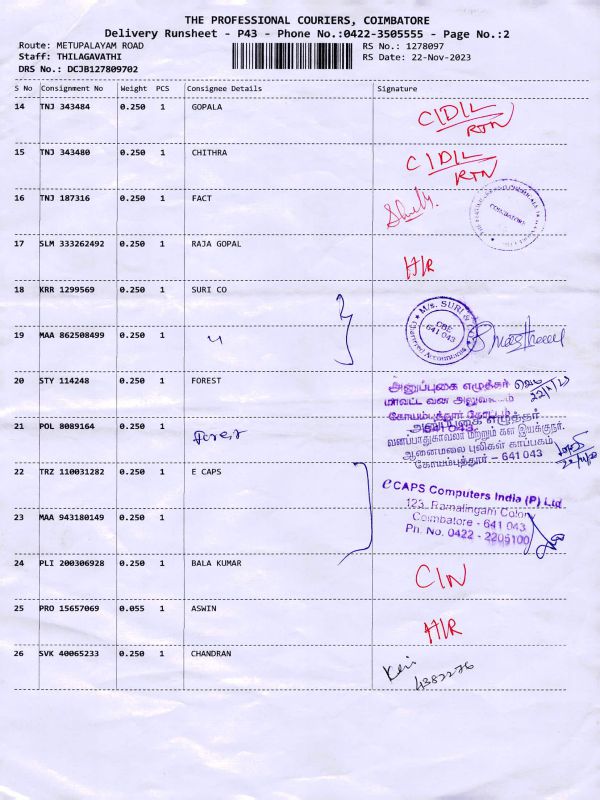 THE PROFESSIONAL COURIERS, COIMBATORE
Delivery Runsheet - P43 - Phone No.:0422-3505555 - Page No.:2
Route: METUPALAYAM ROAD RS No.: 1278097
Staff: THILAGAVATHI RS Date: 22-Nov-2023
DRS No.: DCJB127809702
S No Consignment No Weight PCS Consignee Details Signature
14 TNJ 343484 0.250 1 GOPALA C/D/L
RTN
15 TNJ 343480 0.250 1 CHITHRA C/D/L
RTN
16 TNJ 187316 0.250 1 FACT
COIMBATORE
17 SLM 333262492 0.250 1 RAJA GOPAL H/R
18 KRR 1299569 0.250 1 SURI CO
M/s. SURI &
CBE
641 043
Chartered Accountants
19 MAA 862508499 0.250 1 "
20 STY 114248 0.250 1 FOREST
அனுப்புகை எழுத்தர்
மாவட்ட வன அலுவலகம்
கோயம்புத்தூர் கோட்டம்
641 043
21 POL 8089164 0.250 1 Forest
அனுப்புகை எழுத்தர்
வனப்பாதுகாவலர் மற்றும் கள இயக்குநர்
ஆனைமலை புலிகள் காப்பகம்
கோயம்புத்தூர் – 641 043
22 TRZ 110031282 0.250 1 E CAPS
e CAPS Computers India (P) Ltd
123, Ramalingam Colony
Coimbatore - 641 043
Ph. No. 0422 - 2205100
23 MAA 943180149 0.250 1
24 PLI 200306928 0.250 1 BALA KUMAR C/N
25 PRO 15657069 0.055 1 ASWIN H/R
26 SVK 40065233 0.250 1 CHANDRAN
4382276